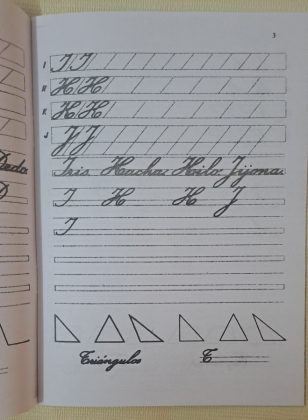 3
I I I
H H H
K H H
J J J
Iris Hacha Hilo Jijona
I H H J
I
Triángulos T